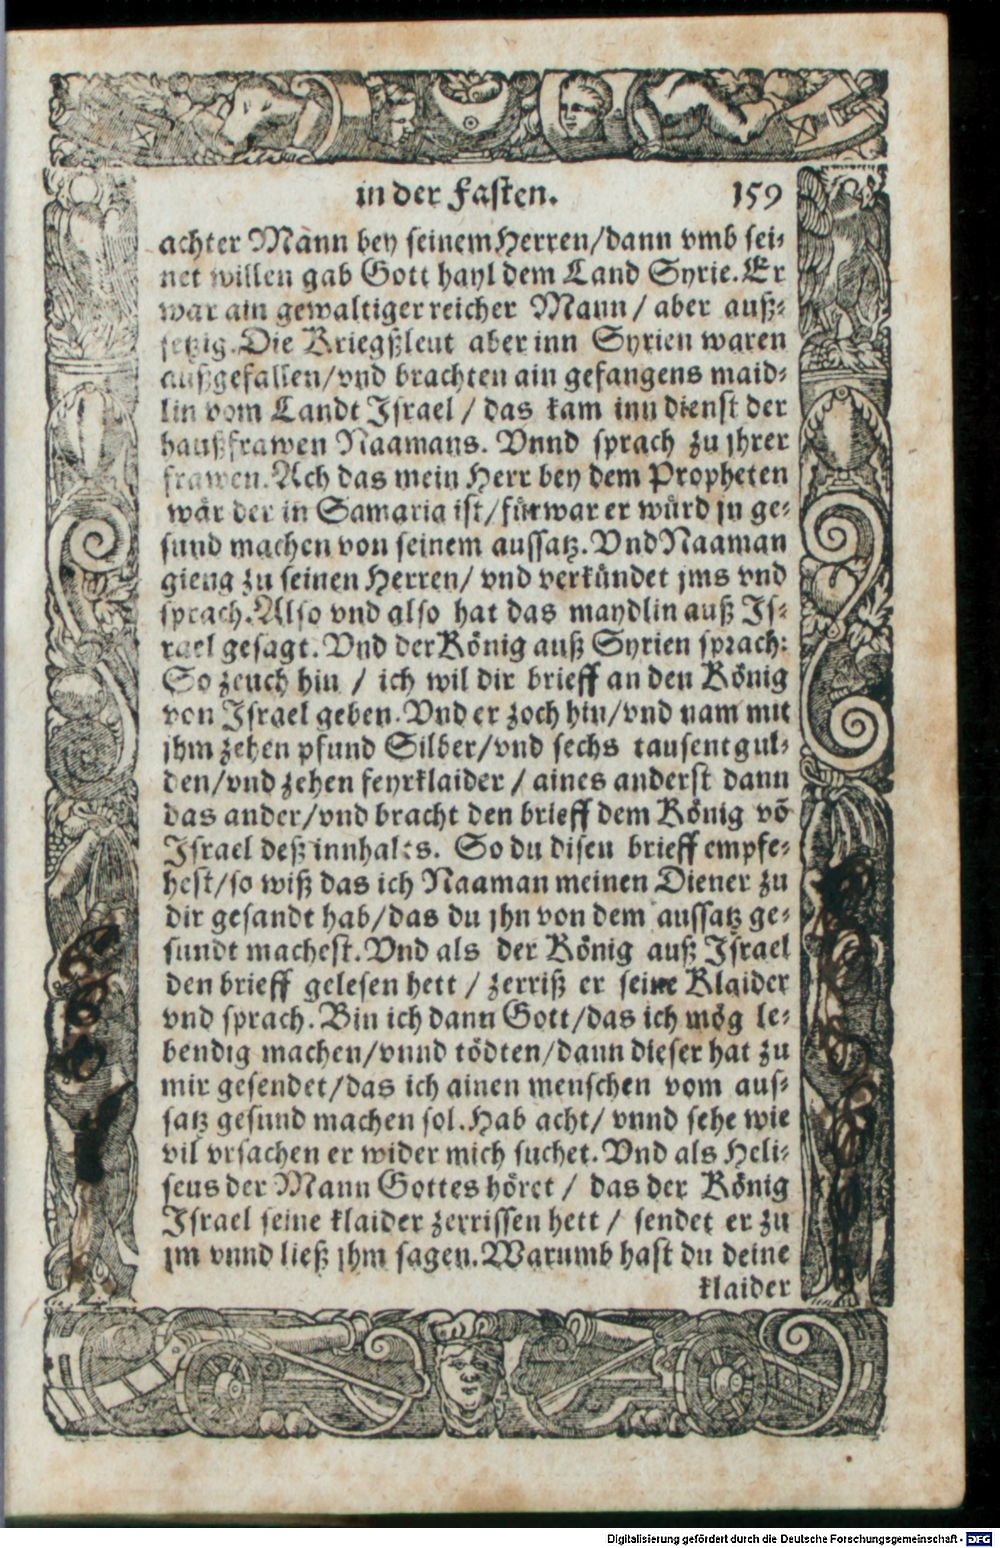 in der Fasten. 159
achter Mann bey seinem Herren/dann vmb sei⸗
net willen gab Gott hayl dem Land Syrie. Er
war ain gewaltiger reicher Mann / aber auß⸗
setzig. Die Kriegßleut aber inn Syrien waren
außgefallen/vnd brachten ain gefangens maid⸗
lin vom Landt Israel / das kam inn dienst der
haußfrawen Naamans. Vnnd sprach zu jhrer
frawen. Ach das mein Herr bey dem Propheten
wär der in Samaria ist/fürwar er würd jn ge⸗
sund machen von seinem aussatz. Vnd Naaman
gieng zu seinen Herren/ vnd verkündet jms vnd
sprach. Also vnd also hat das maydlin auß Is⸗
rael gesagt. Vnd der König auß Syrien sprach:
So zeuch hin / ich wil dir brieff an den König
von Israel geben. Vnd er zoch hin/vnd nam mit
jhm zehen pfund Silber/vnd sechs tausent gul⸗
den/vnd zehen feyrklaider / aines anderst dann
das ander/vnd bracht den brieff dem König võ
Israel deß innhalts. So du disen brieff empfe⸗
hest/so wiß das ich Naaman meinen Diener zu
dir gesandt hab/das du jhn von dem aussatz ge⸗
sundt machest. Vnd als der König auß Israel
den brieff gelesen hett / zerriß er seine Klaider
vnd sprach. Bin ich dann Gott/das ich mög le⸗
bendig machen/vnnd tödten/dann dieser hat zu
mir gesendet/das ich ainen menschen vom aus⸗
satz gesund machen sol. Hab acht/ vnnd sehe wie
vil vrsachen er wider mich suchet. Vnd als Heli⸗
seus der Mann Gottes höret / das der König
Israel seine klaider zerrissen hett / sendet er zu
jm vnnd ließ jhm sagen. Warumb hast du deine
klaider
Digitalisierung gefördert durch die Deutsche Forschungsgemeinschaft - DFG